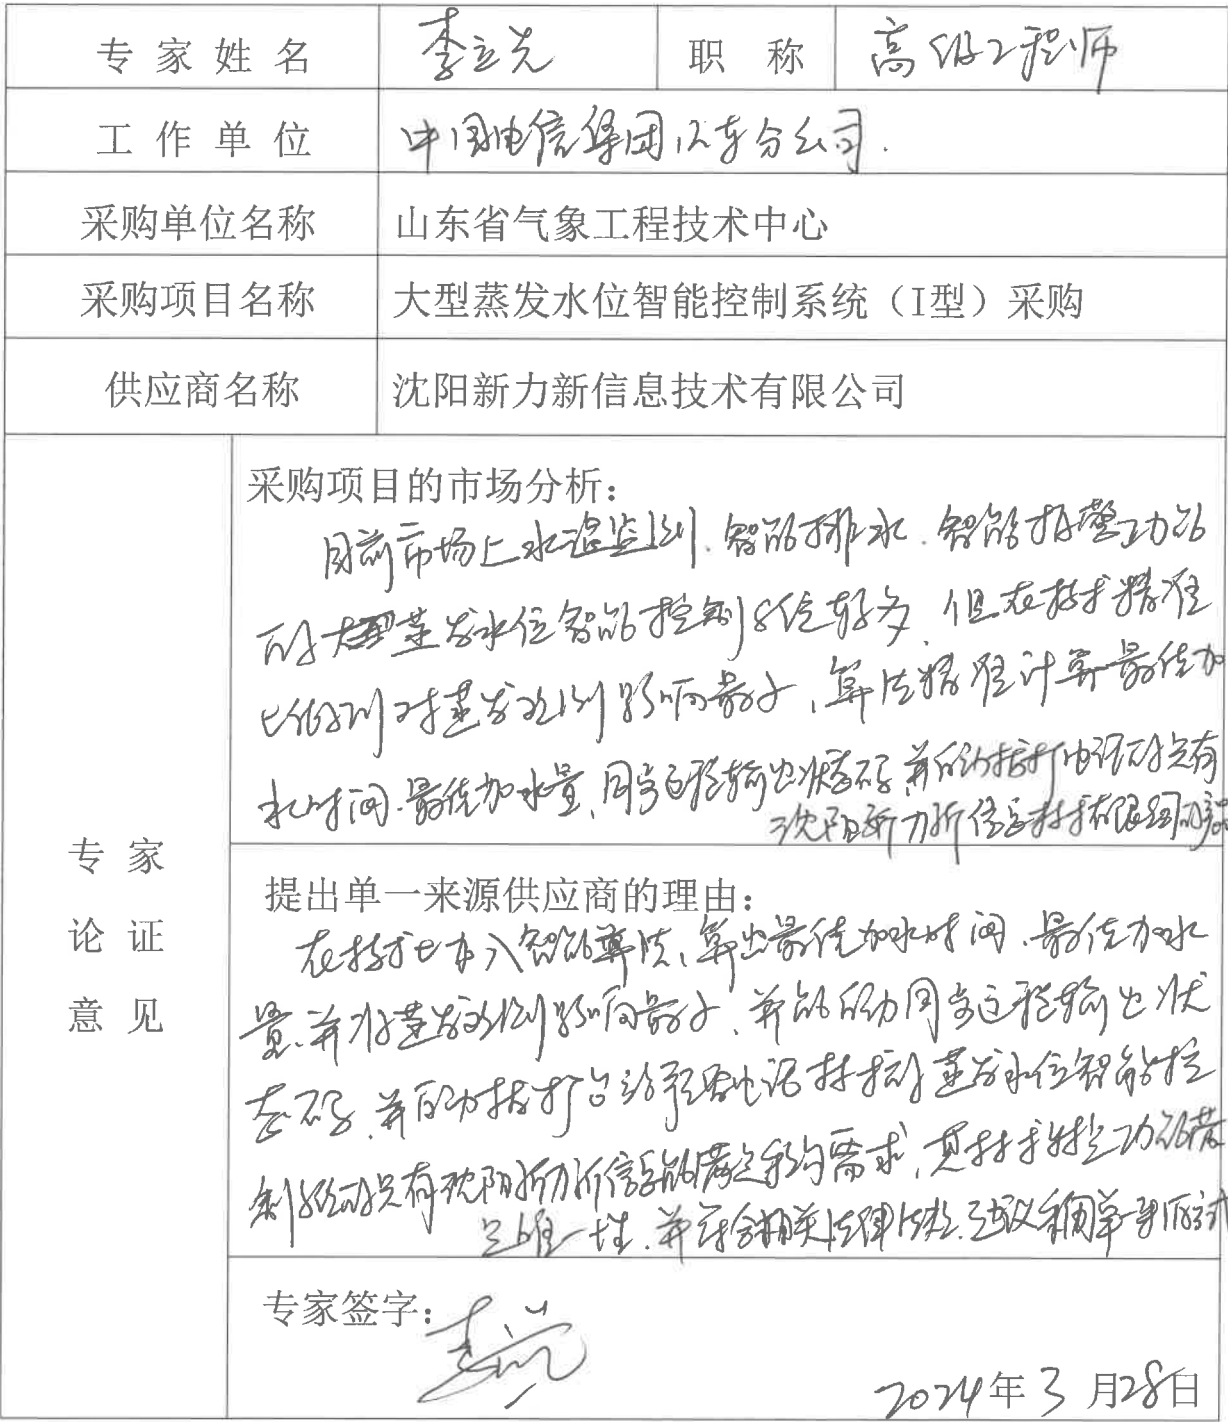 专家姓名 李立光 职称 高级工程师
工作单位 中国电信集团山东分公司.
采购单位名称 山东省气象工程技术中心
采购项目名称 大型蒸发水位智能控制系统（I型）采购
供应商名称 沈阳新力新信息技术有限公司
专家
论证
意见
采购项目的市场分析：
目前市场上水温监测、智能排水、智能报警功能
的大型蒸发水位智能控制系统较多，但在技术精准
对蒸发观测影响最小、算法精准计算最佳加
水时间、最佳加水量、同步远程输出状态码、并自动拨打电话的只有
沈阳新力新信息技术有限公司
提出单一来源供应商的理由：
在技术上有智能算法、算出最佳加水时间、最佳加水
量、并对蒸发观测影响最小、并能自动同步远程输出状
态码、并自动拨打台站预留电话 蒸发水位智能控
制系统的只有沈阳新力新信息能满足采购需求，其技术特定功能满
足唯一性、并符合相关法律法规、建议采用单一来源方式
专家签字：李立光
2024年3月28日